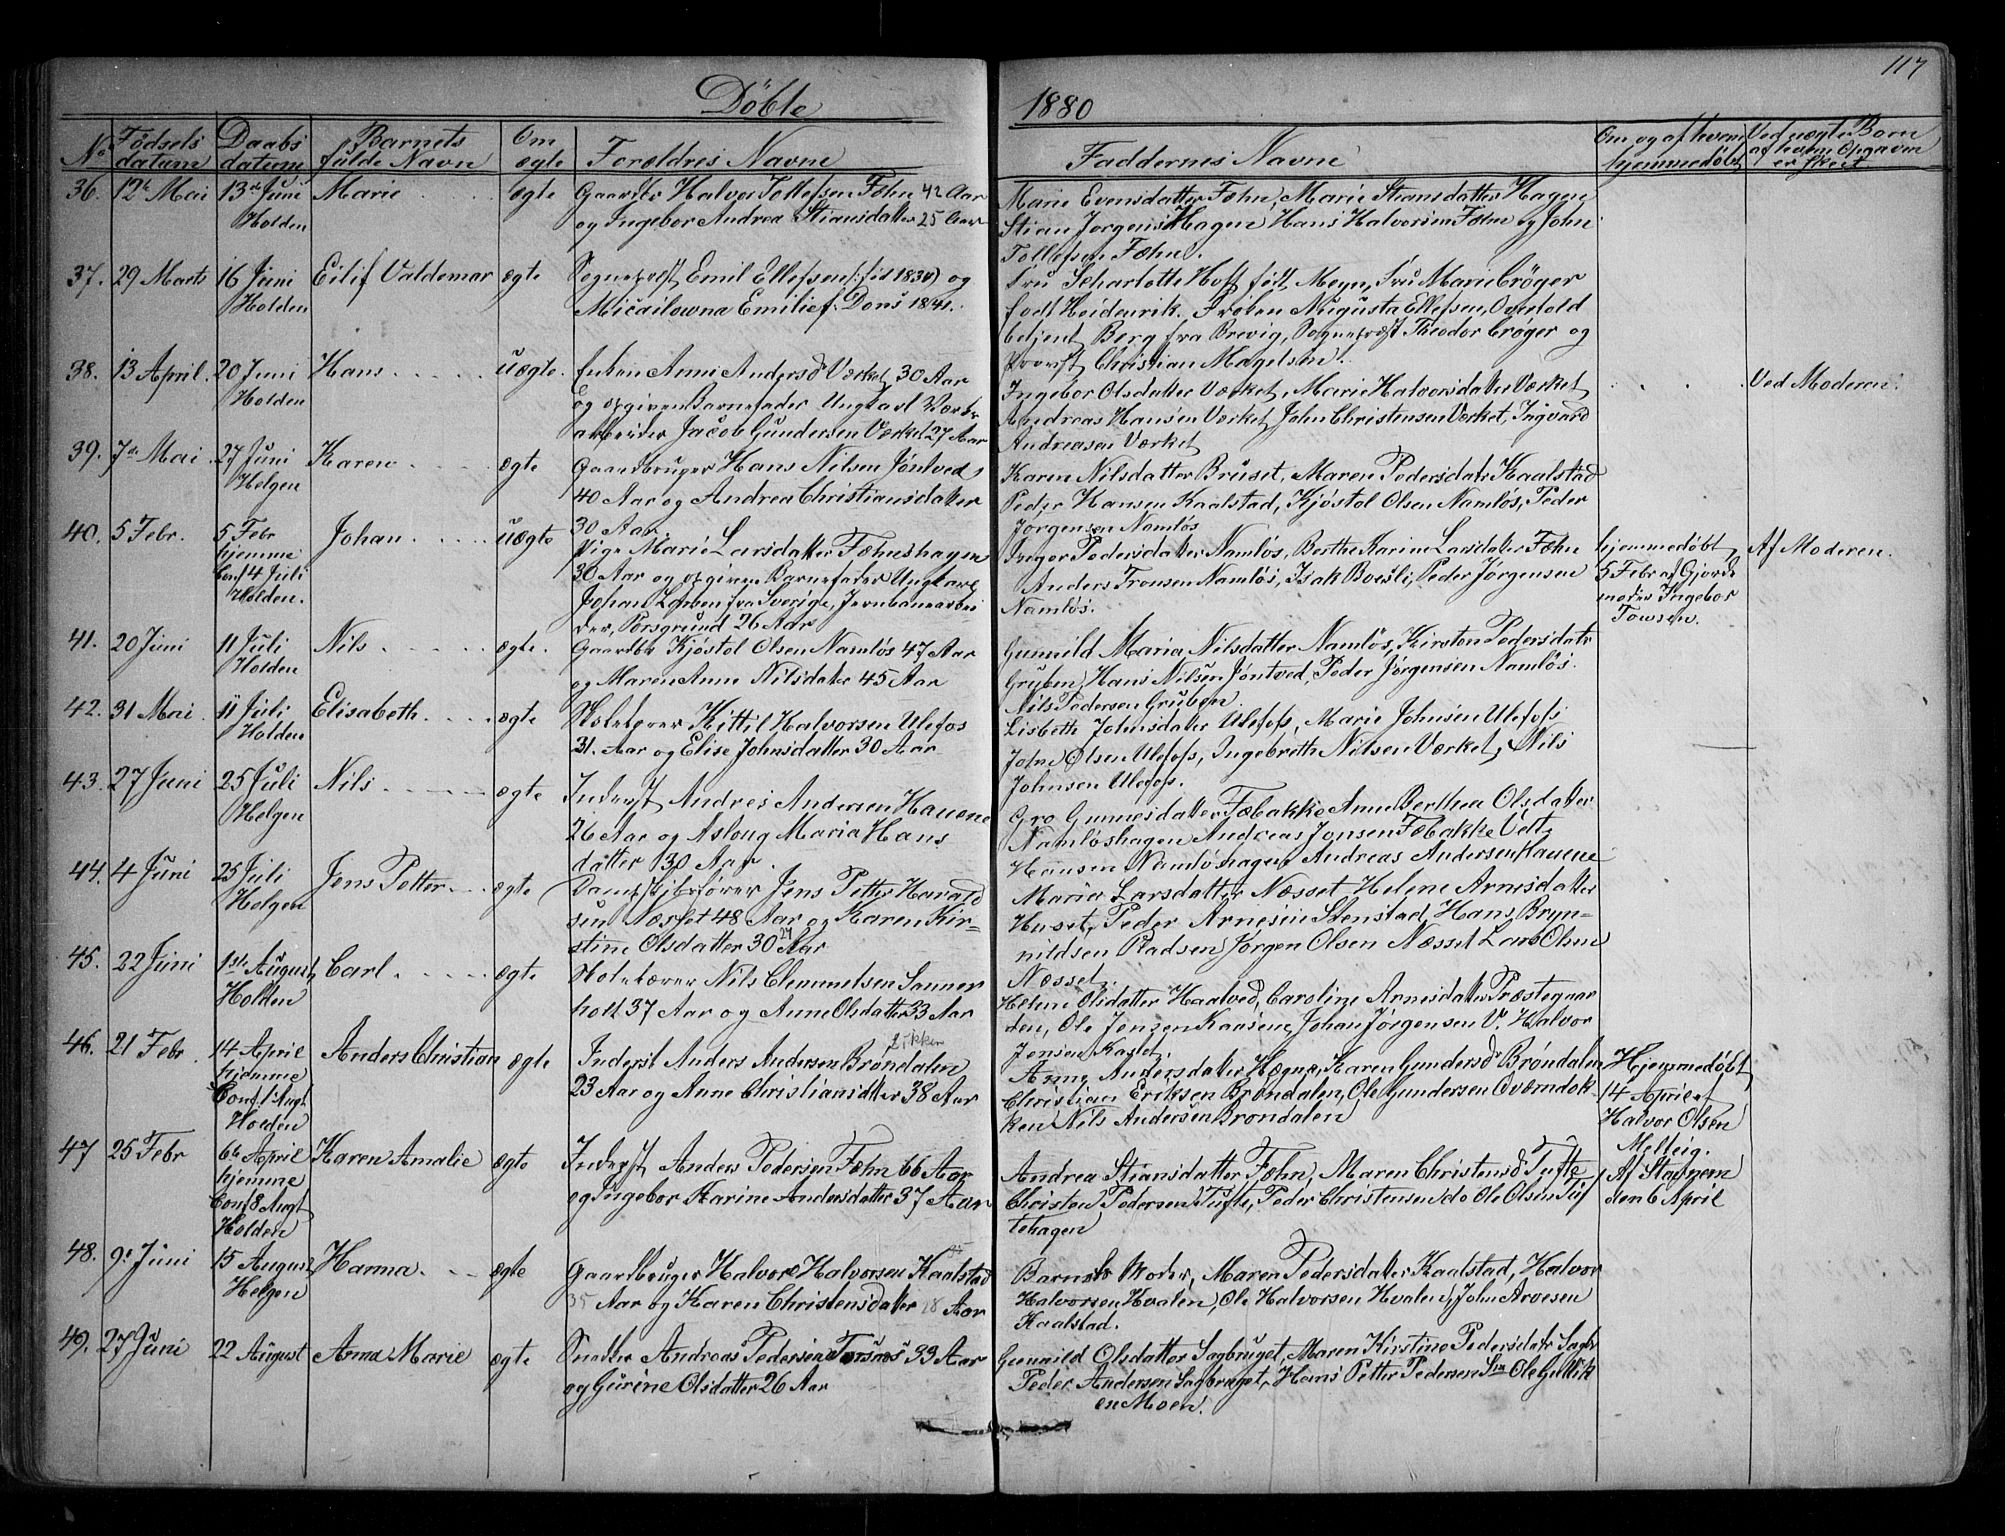 117
Døbte
1880
No Fødsels datum Daabs datum Barnets fulde Navn Om ægte Forældres Navne Faddernes Navne Om og af hvem hjemmedøbt Ved uægte Børn af hvem Opgaven er skeet
36. 12te Mai 13de Juni Holden Marie ægte Gaardbr Halvor Tollefsen Fæhn 42 Aar
og Ingebor Andrea Stiansdatter 25 Aar
Marie Evensdatter Fæhn, Marie Stiansdatter Hagen
Stian Jørgens Hagen Hans Halvorsen Fæhn og John
Tollefsen Fæhn.
37. 29 Marts 16 Juni Holden Eilif Valdemar ægte Sognepræst Emil Ellefsen (: fød 1830) og
Micailowna Emilie f. Dons 1841.
Fru Scharlotte Hoff født Meyn, Fru Marie Crøger
født Heidenrik. Frøken Augusta Ellefsen, Overtold
betjent Berg fra Brevig, Sognepræst Theodor Crøger og
Provst Christian Magelsen.
38. 13 April. 20 Juni Holden Hans uægte. Enken Anne Andersd Værket 30 Aar
og opgiven Barnefader Ungkarl Værks
arbeider Jacob Gundersen Værket 27 Aar
Ingebor Olsdatter Værket, Marie Halvorsdatter Værket
Andreas Hansen Værket John Christensen Værket, Ingvard
Andreasen Værket
Ved Moderen.
39. 7de Mai 27 Juni Helgen Karen ægte Gaardbruger Hans Nilsen Jøntved
40 Aar og Andrea Christiansdatter
30 Aar
Karen Nilsdatter Bruset, Maren Pedersdatr Kaalstad
Peder Hansen Kaalstad, Kjøstol Olsen Namløs, Peder
Jørgensen Namløs
40. 5 Febr. 5 Febr hjemme Conf 4 Juli Holden. Johan uægte Pige Marie Larsdatter Fæhnshagen
30 Aar og opgiven Barnefader Ungkarl
Johan Larsen fra Sverige, Jernbanearbei
der, Porsgrund 26 Aar
Inger Pedersdatter Namløs, Berthe Karine Larsdatter Fæhn
Anders Tronsen Namløs, Isak Boesli, Peder Jørgensen
Namløs.
hjemmedøbt
5 Febr af Gjorde
moder Ingebor
Towsen.
Af Moderen.
41. 20 Juni 11 Juli Holden Nils ægte. Gaardbr Kjøstol Olsen Namløs 47 Aar
og Maren Anne Nilsdatter 45 Aar
Gunnild Maria Nilsdatter Namløs, Kirsten Pedersdatr
Gruben, Hans Nilsen Jøntved, Peder Jørgensen Namløs.
Nils Pedersen Gruben.
42. 31 Mai 11 Juli Holden Elisabeth. ægte Kittil Halvorsen Ulefos
31. Aar og Elise Johnsdatter 30 Aar
Lisbeth Johnsdatter Ulefoss, Marie Johnsen Ulefoss
John Olsen Ulefoss, Ingebreth Nilsen Værket, Nils
Johnsen Ulefoss.
43. 27 Juni 25 Juli Helgen Nils ægte Inderst Andreas Andersen Hauene
26 Aar og Aslaug Maria Hans
datter 30 Aar.
Gro Gunnesdatter Fæbakke Anne Berthea Olsdatter
Namløshagen Andreas Jonsen Fæbakke Vetle
Hansen Namløshagen Andreas Andersen Hauene
44. 4 Juni 25 Juli Helgen Jens Petter ægte Dampskibsfører Jens Petter Harald
sen Næsset 48 Aar og Karen Kir-
stine Olsdatter 30 Aar
Maria Larsdatter Næsset Helene Arnesdatter
Huset, Peder Arnesen Stenstad, Hans Bryn-
nildsen Pladsen, Jørgen Olsen Næsset Lars Olsen
Næsset.
45. 22 Juni 1ste August Holden Carl ægte Nils Clemmetsen Sanner
holt 37 Aar og Anne Olsdatter 33 Aar
Helene Olsdatter Haatved, Caroline Arnesdatter Præstegaar
den, Ole Jensen Kaasene, Johan Jørgensen V. Halvor
Jensen Kastet.
46. 21 Febr. 14 April hjemme Conf 1 Augt Holden Anders Christian ægte Inderst Anders Andersen Brøndalen
23 Aar og Anne Christiansdtter 38 Aar
Anne Andersdatter Hægna, Karen Gundersdr Brøndalen
Christian Eriksen Brøndalen, Ole Gundersen Oværndok
ken Nils Andersen Brøndalen
Hjemmedøbt
14 April af
Halvor Olsen
Melteig.
47 25 Febr 6te April hjemme Conf 8 Augt Holden Karen Amalie ægte Inderst Anders Pedersen Fæhn 66 Aar
og Ingebor Karine Andersdatter 37 Aar
Andrea Stiansdatter Fæhn, Maren Christensd Tufte
Christen Pedersen Tufte, Peder Christensen do Ole Olsen Tuf
tehagen
Af Stampem
den 6 April
48. 9de Juni 15 August Helgen Hanna. ægte Gaardbruger Halvor Halvorsen Kaalstad
35 Aar og Karen Christensdatter 28 Aar
Barnets Moder, Maren Pedersdatter Kaalstad, Halvor
Halvorsen Hvalen, Ole Halvorsen Hvalen, John Arvesen
Kaalstad.
49. 27 Juni 22 August Anna Marie ægte Snedker Andreas Pedersen 33 Aar
og Gurine Olsdatter 26 Aar
Gunnild Olsdatter Sagbruget, Maren Kirstine Pedersdatr Sagbr
Peder Andersen Sagbruget, Hans Petter Pedersen Ole Gullik
en Moen.